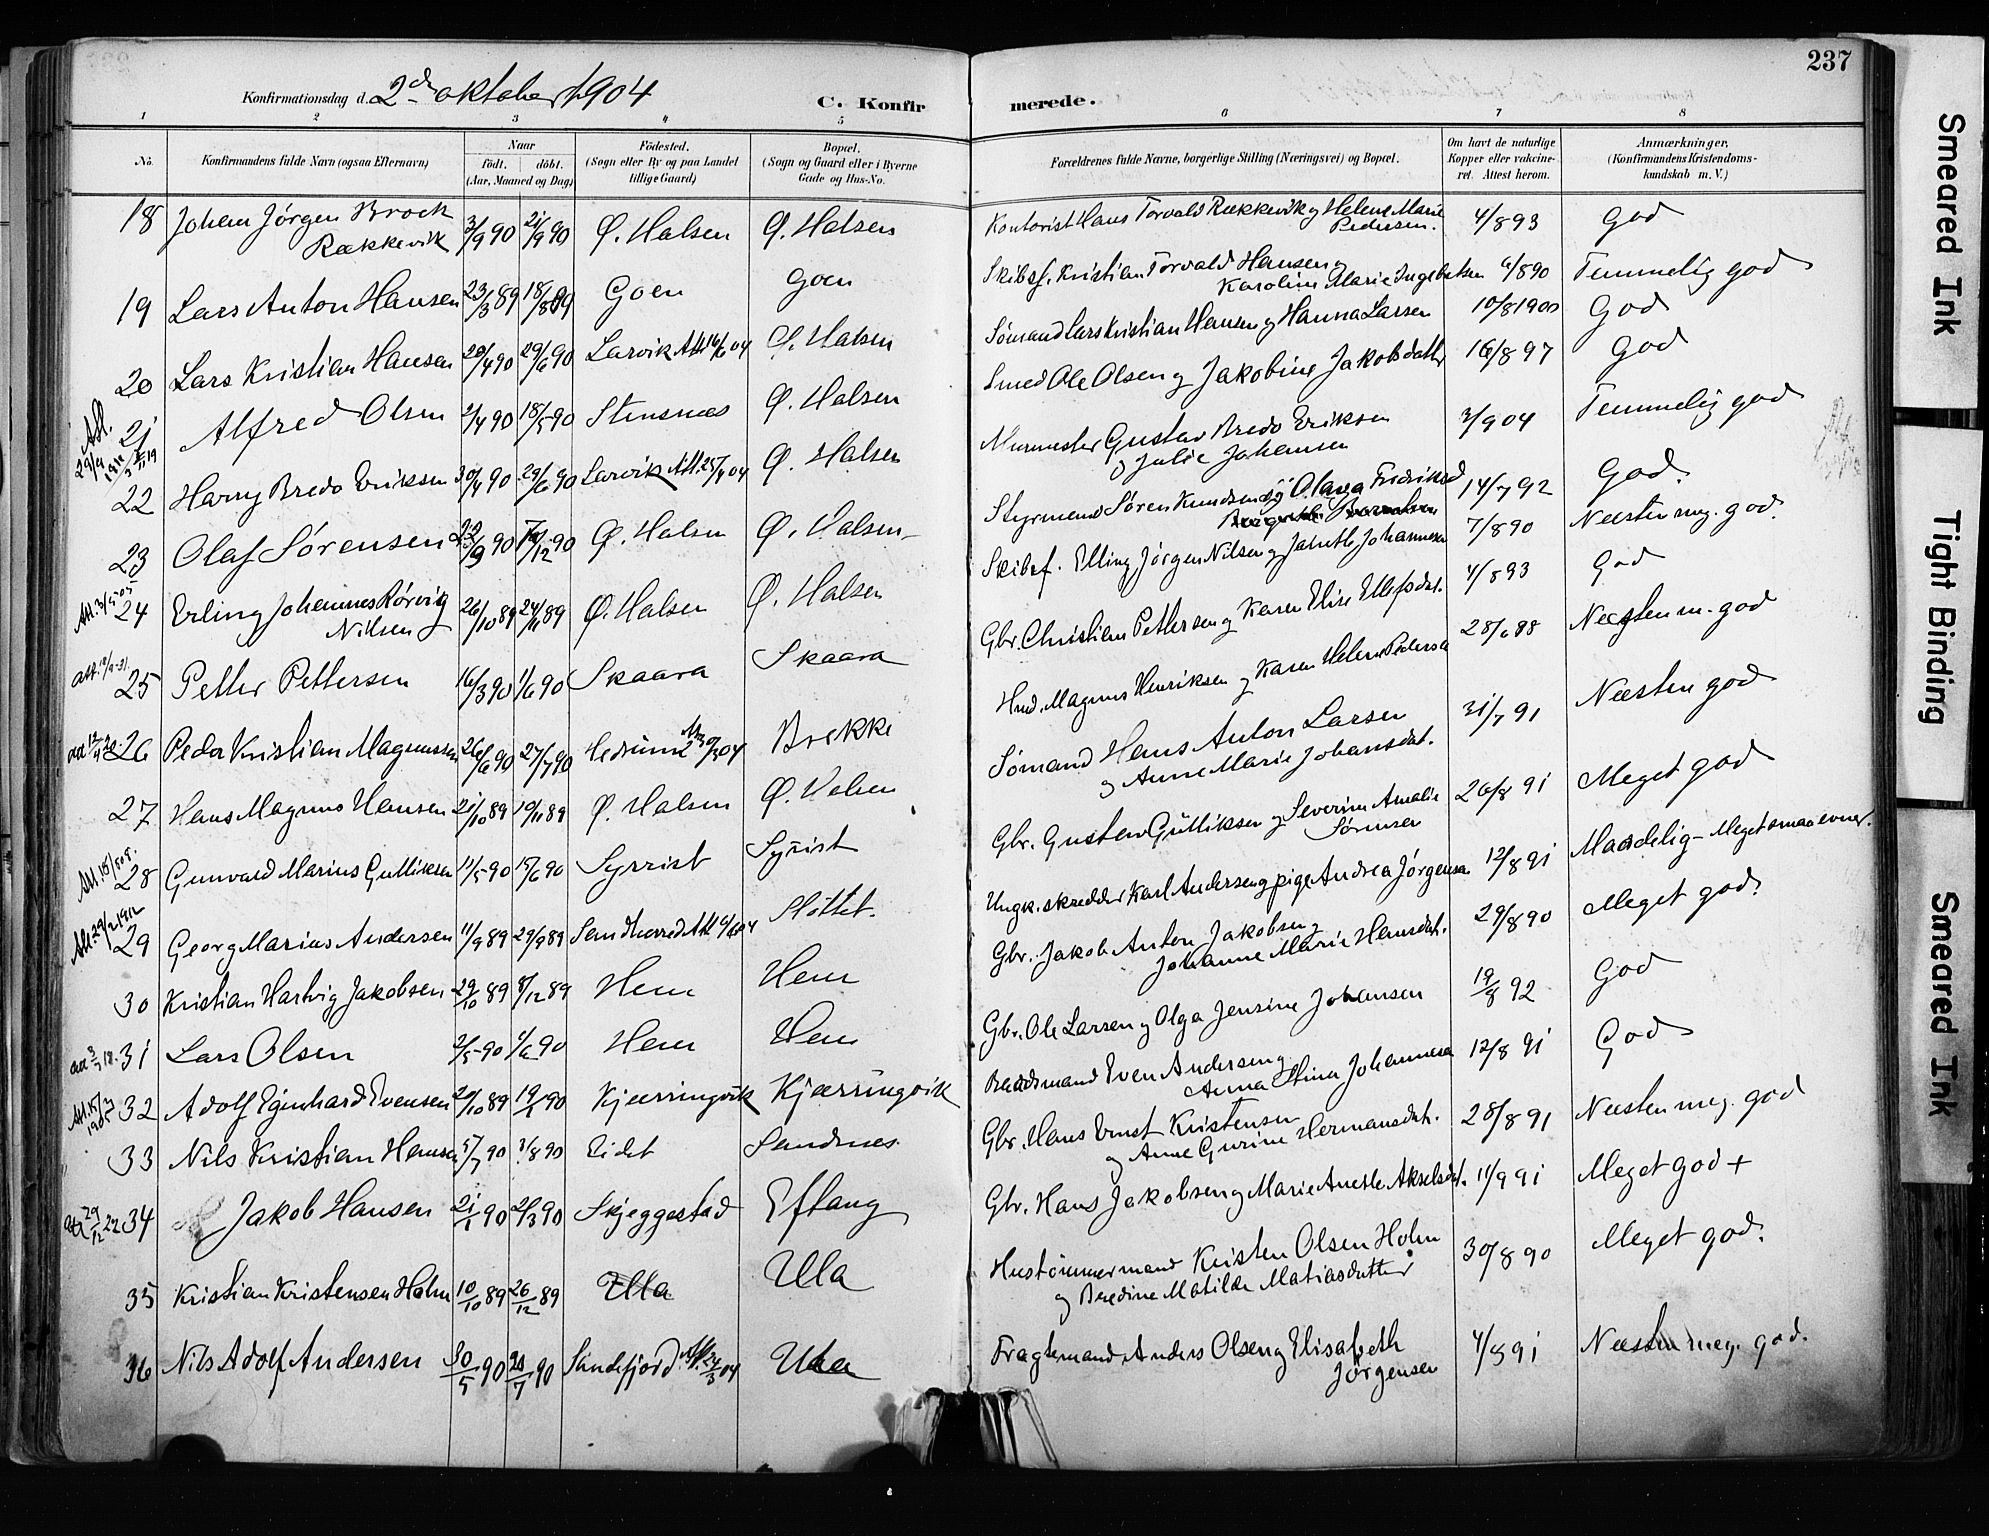 237
Konfirmationsdag d. 2d oktober 1904
C. Konfirmerede.
1 2 3 4 5 6 7 8
No. Konfirmandens fulde Navn (ogsaa Efternavn) Naar Födt. döbt. (Aar, Maaned og Dag) Födested. (Sogn eller By og paa Landet tillige Gaard) Bopæl. (Sogn og Gaard eller i Byerne Gade og Hus-No. Forældrenes fulde Navne, borgerlige Stilling (Næringsvei) og Bopæl. Om havt de naturlige Kopper eller vaccineret. Attest herom. Anmærkninger, (Konfirmandens Kristendomskundskab m. V.)
18 Johan Jörgen Brock Rækkevik 3/9 90 21/9 90 Ø. Halsen Ø. Halsen Kontorist Hans Torvald Rækkevik og Helene Marie Pedersen. 4/8 93 God
19 Lars Anton Hansen 23/3 89 18/8 89 Goen Goen Skibsf. Kristian Torvald Hansen og Karoline Marie Ingebretsen 6/8 90 Temmelig god
20 Lars Kristian Hansen 20/4 90 29/6 90 Larvik Att. 16/6 04 Ø. Halsen Sömand Lars Kristian Hansen og Hanna Larsen 10/8 1900 God
21 Alfred Olsen 2/4 90 18/5 90 Stensnæs Ø. Halsen Smed Ole Olsen og Jakobine Jakobsdatter 16/8 97 God
22 Harry Bredo Eriksen 30/4 90 29/6 90 Larvik Att. 25/4 04 Ø. Halsen Murmester Gustav Bredo Eriksen og Julie Johansen 3/9 04 Temmelig god
23 Olaf Sörensen 22/9 90 12 90 Ø. Halsen Ø. Halsen Styrmand Sören Knudsen og Olava Fredriksd 14/7 92 God.
24 Erling Johannes Rörvig Nilsen 26/10 89 24/11 89 Ø. Halsen Ø. Halsen Skibsf. Elling Jörgen Nilsen og Janette Johannesen 7/8 90 Næsten meg. god.
25 Petter Pettersen 16/3 90 1/6 90 Skaara Skaara Gbr. Christian Pettersen og Karen Elise Ellefsdat. 4/8 93 God
26 Peder Kristian Magnussen 26/6 90 27/7 90 Hedrum Brekke Hmd. Magnus Henriksen og Karen Helene Pedersen 28/6 88 Næsten m. god
27 Hans Magnus Hansen 21/10 89 10/11 89 Ø. Halsen Ø. Halsen Sömand Hans Anton Larsen og Anne Marie Johansdat. 31/7 91 Næsten god
28 Gunvald Marius Gulliksen 11/5 90 15/6 90 Syrrist Syrist Gbr. Gustav Gulliksen og Severine Amalie Sörensen 26/8 91 Meget god
29 Georg Marius Andersen 11/9 89 29/9 89 Sandherred Slottet. Ungk. skredder Karl Andersen og pige Andrea Jörgensen 12/8 91 Maadelig - Meget smaa evner.
30 Kristian Hartvig Jakobsen 29/10 89 8/12 89 Hem Hem Gbr. Jakob Anton Jakobsen og Johanne Marie Hansdat. 29/8 90 Meget god.
31 Lars Olsen 2/5 90 1/6 90 Hem Hem Gbr. Ole Larsen og Olga Jensine Johansen 19/8 92 God
32 Adolf Eginhard Evensen 20/10 89 19/1 90 Kjærringvik Kjærringvik Baadsmand Even Andersen og Anna Stina Johannesen 12/8 91 God
33 Nils Kristian Hansen 5/7 90 3/8 90 Eidet Sandnes Gbr. Hans Ernst Kristensen og Anne Gurine Hermansdat. 28/8 91 Næsten meg. god
34 Jakob Hansen 21/1 90 2/3 90 Skjeggestad Eftang Gbr. Hans Jakobsen og Marie Anette Akselsdat. 11/9 91 Meget god +
35 Kristian Kristensen Holm 10/10 89 26/12 89 Ula Ula Hustömmermand Kristen Olsen Holm og Beredine Matilde Matiasdatter 30/8 90 Meget god.
36 Nils Adolf Andersen 30/5 90 20/7 90 Sandefjord Att. 24/3 04 Ula Fragtemand Anders Olsen og Elisabeth Jörgensen 4/8 91 Næsten meg. god.
Smeared Ink
Tight Binding
Smeared Ink